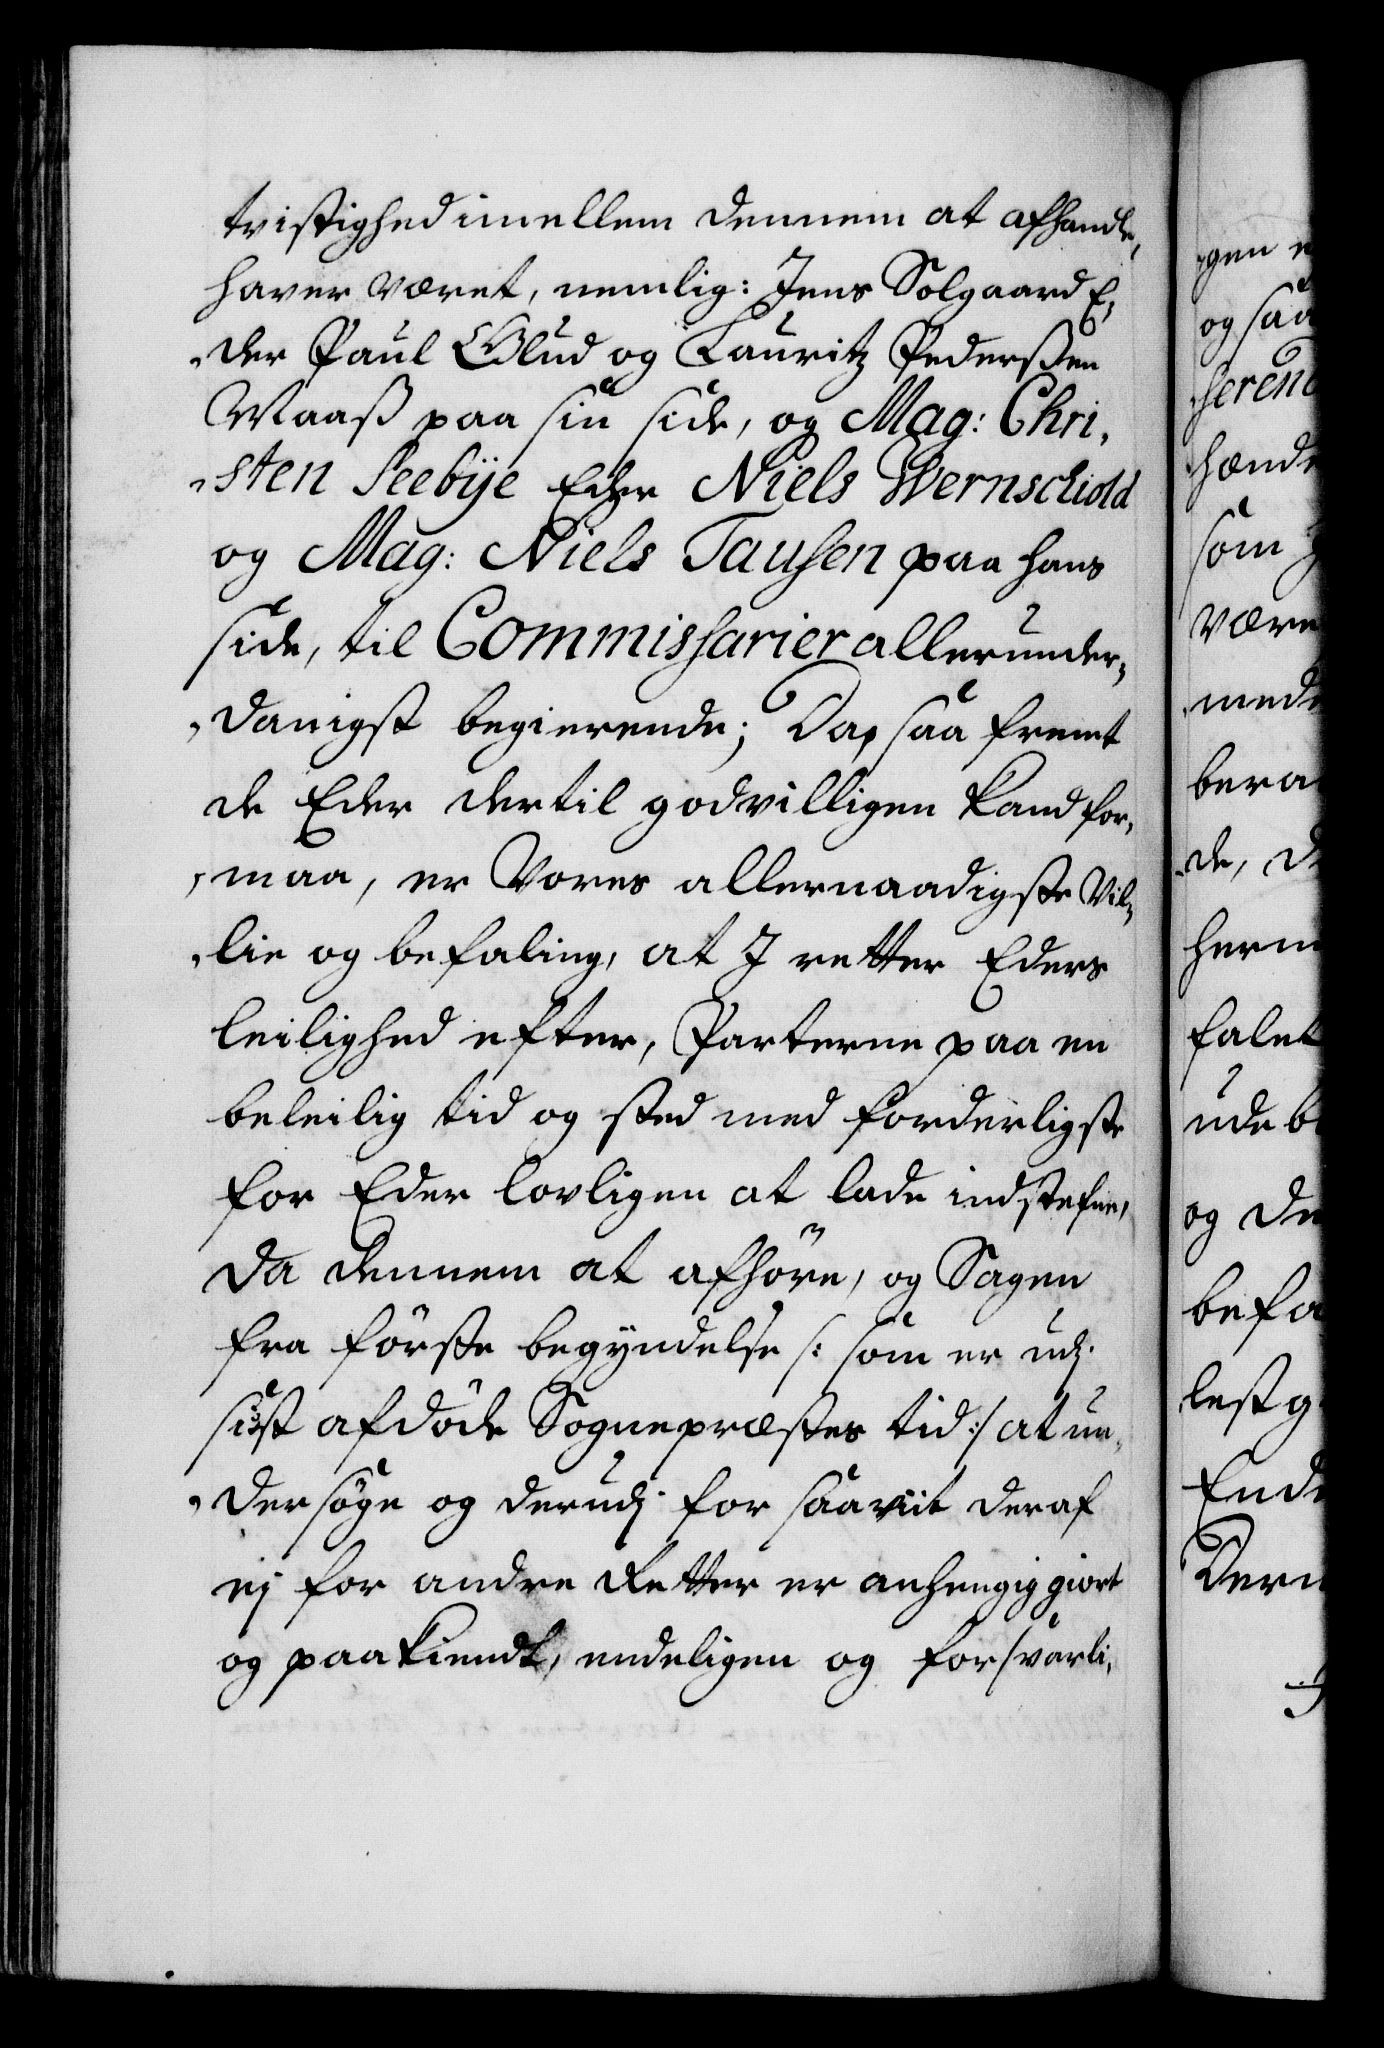 tvistighed imellem dennem at afhandle,
haver været, nemlig: Jens Solgaard E,
„der Paul Glud og Lauritz Pederßen
Waaß paa sin side, og Mag: Chri,
„sten Seebÿe Eder Niels Wernschiold
og Mag: Niels Tausen paa hans
side, til Commissarier allerunder,
„danigst begierende; Da, saa fremt
de Eder dertil godvilligen kand for,
„maa, er Vores allernaadigste Vil,
„lie og befaling, at I retter Eders
leilighed efter, Parterne paa en
beleilig tid og sted med forderligste
for Eder lovligen at lade indstefne,
da dennem at afhöre, og Sagen
fra förste begyndelse /: som er udj
sidst afdöde Sognepræstes tid :/ at un,
„dersöge og derudj for saavit deraf
ej for andre Retter er anhengiggiort
og paakiendt, endeligen og forsvarli,
gen e
og saa
hænde
som
være
med
bera
de, d
herm
falet
ude b
og de
befa
lest g
Ende
Dern